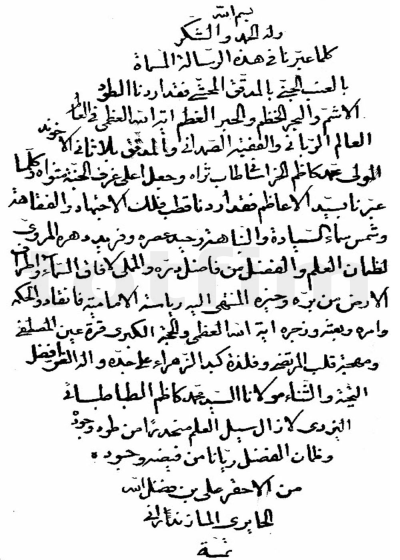 بسم الله
وله الحمد والشكر
كلما عبرنا في هذه الرسالة المسماة
بالعسر الحجتي بالمدقق المحشي فقد اردنا الطود
الاشم والبحر الخظم والحبر العظم اية الله العظمى في العالم
العالم الرباني والفقيه الصمداني والمدقق بلا ثاني الاخوند
المولى محمد كاظم الخراساني طاب ثراه وجعل اعلى غرف الجنة مثواه وكلما
عبرنا بسيد الاعاظم فقد اردنا قطب فلك الاجتهاد والفقاهة
وشمس سماء السيادة والنباهة وحيد عصره وفريد دهره المروي
لظمان العلم والفضل من فاضل بره والملي لافاق السماء وافاق
الارض من بره وخيره المنتهى اليه رياسة الامامية فانقاد والحكمه
وامره وبعثه وزجره اية الله العظمى والحجة الكبرى قرة عين المصطفى
ومهجة قلب المرتضى وفلذة كبد الزهراء على جده واله الغر افضل
التحية والثناء مولانا السيد محمد كاظم الطباطبائي
اليزدي لا زال سيل العلم منحدرا من طوده وجوده
وظمان الفضل ريانا من فيضه وجوده
من الاحقر علي بن فضل الله
الحايري المازندراني
تمة